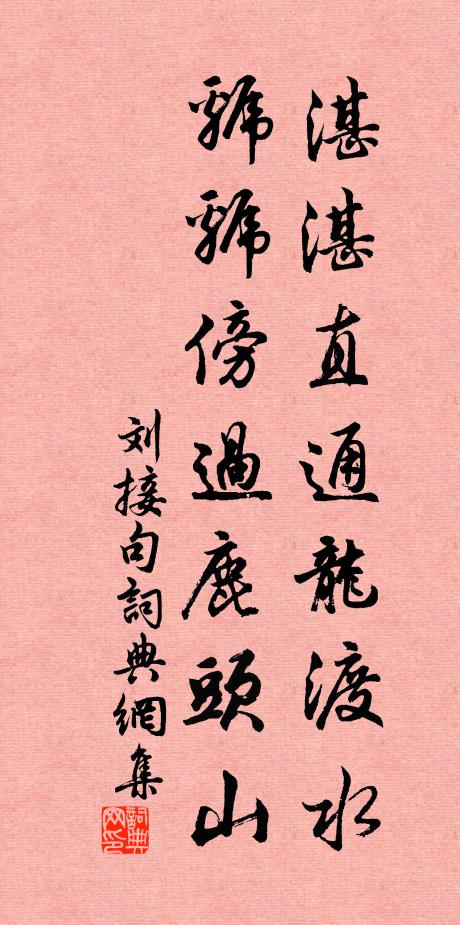 湛湛直通龍渡水
虢虢傍過鹿頭山
刘接句詞典網集
詞典
网印